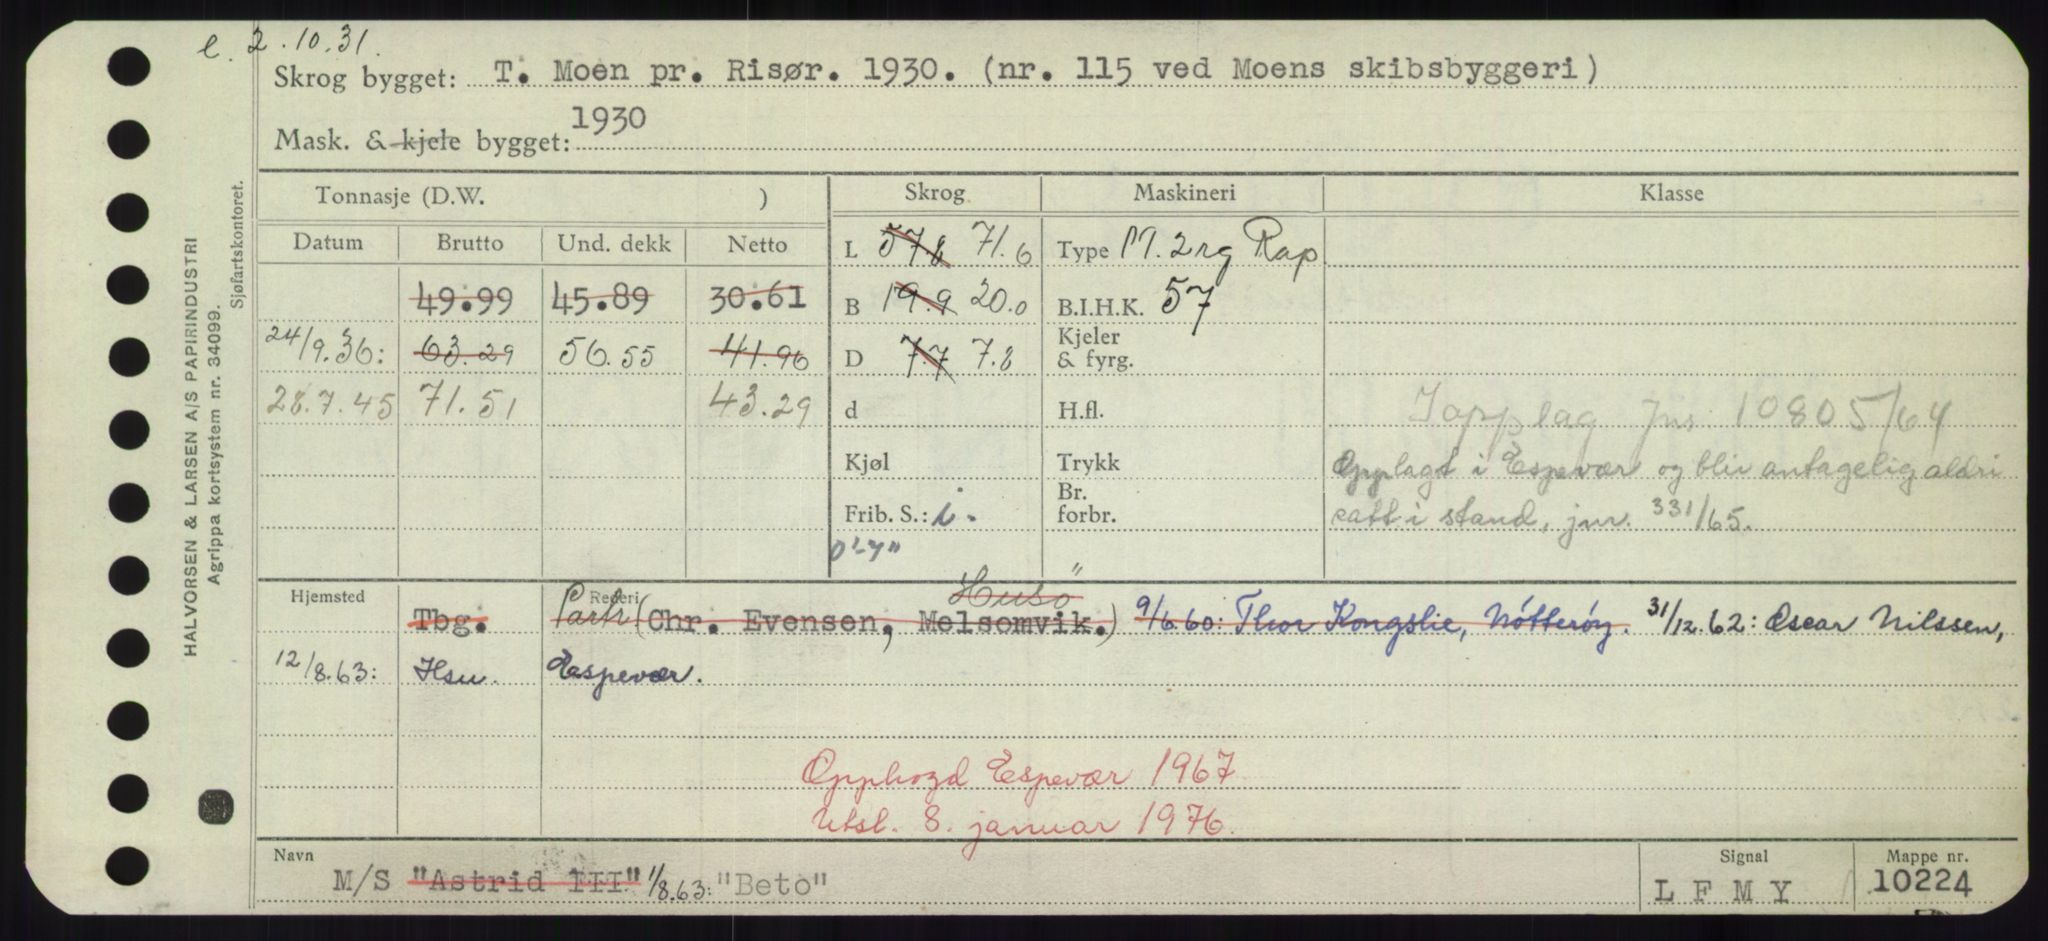 e. 2.10.31.
Skrog bygget: T. Moen pr. Risør. 1930. (nr. 115 ved Moens skibsbyggeri)
Mask. & kjele bygget: 1930
HALVORSEN & LARSEN A/S PAPIRINDUSTRI
Agrippa kortsystem nr. 34099.
Sjøfartskontoret.
Tonnasje (D.W. ) Skrog Maskineri Klasse
Datum Brutto Und. dekk Netto
L 57.8 71.6 Type M. 2 Rap
49.99 45.89 30.61 B 19.9 20.0 B.I.H.K. 57
24/9.36: 63.29 56.55 41.96 D 7.7 7.8 Kjeler & fyrg.
28.7.45 71.51 43.29 d H.fl. I opplag jnr. 10805/64
Kjøl Trykk Opplagt i Espevær og blir antagelig aldri
Frib. S.: i. Br. forbr. satt i stand, jnr. 331/65.
0'-7"
Hjemsted Rederi Husö
Tbg. Partr. (Chr. Evensen, Melsomvik.) 9/6.60: Thor Kongslie, Nötteröy. 31/12.62: Oscar Nilssen,
12/8.63: Hsu. Espevær.
Opphogd Espevær 1967
Utsl. 8. januar 1976.
Navn Signal Mappe nr.
M/S "Astrid III" 1/8.63: "Beto" L F M Y 10224